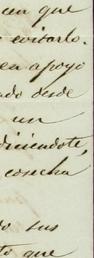 una que
evitarlo.
en apoyo
ado desde
un
diciendote,
cosecha
do sus
to que